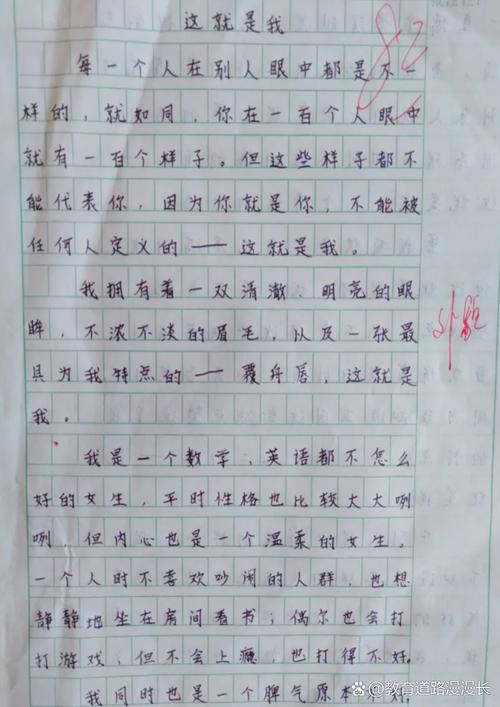 这就是我
82
每一个人在别人眼中都是不一
样的，就如同，你在一百个人眼中
就有一百个样子。但这些样子都不
能代表你，因为你就是你，不能被
任何人定义的——这就是我。
我拥有着一双清澈、明亮的眼
眸，不浓不淡的眉毛，以及一张最
具为我特点的——覆舟唇，这就是
我。
外貌
我是一个数学、英语都不怎么
好的女生，平时性格也比较大大咧
咧，但内心也是一个温柔的女生。
一个人时不喜欢吵闹的人群，也想
静静地坐在房间看书；偶尔也会打
打游戏，但不会上瘾，也打得不好。
我同时也是一个脾气原本不好，
@教育道路漫漫长